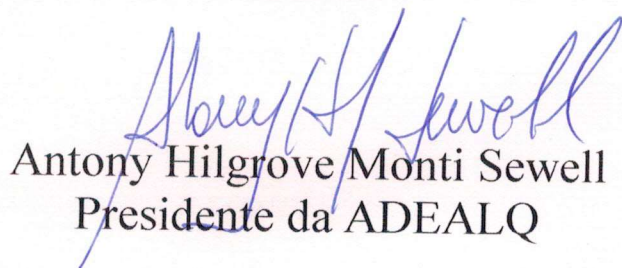 Antony H Sewell
Antony Hilgrove Monti Sewell
Presidente da ADEALQ